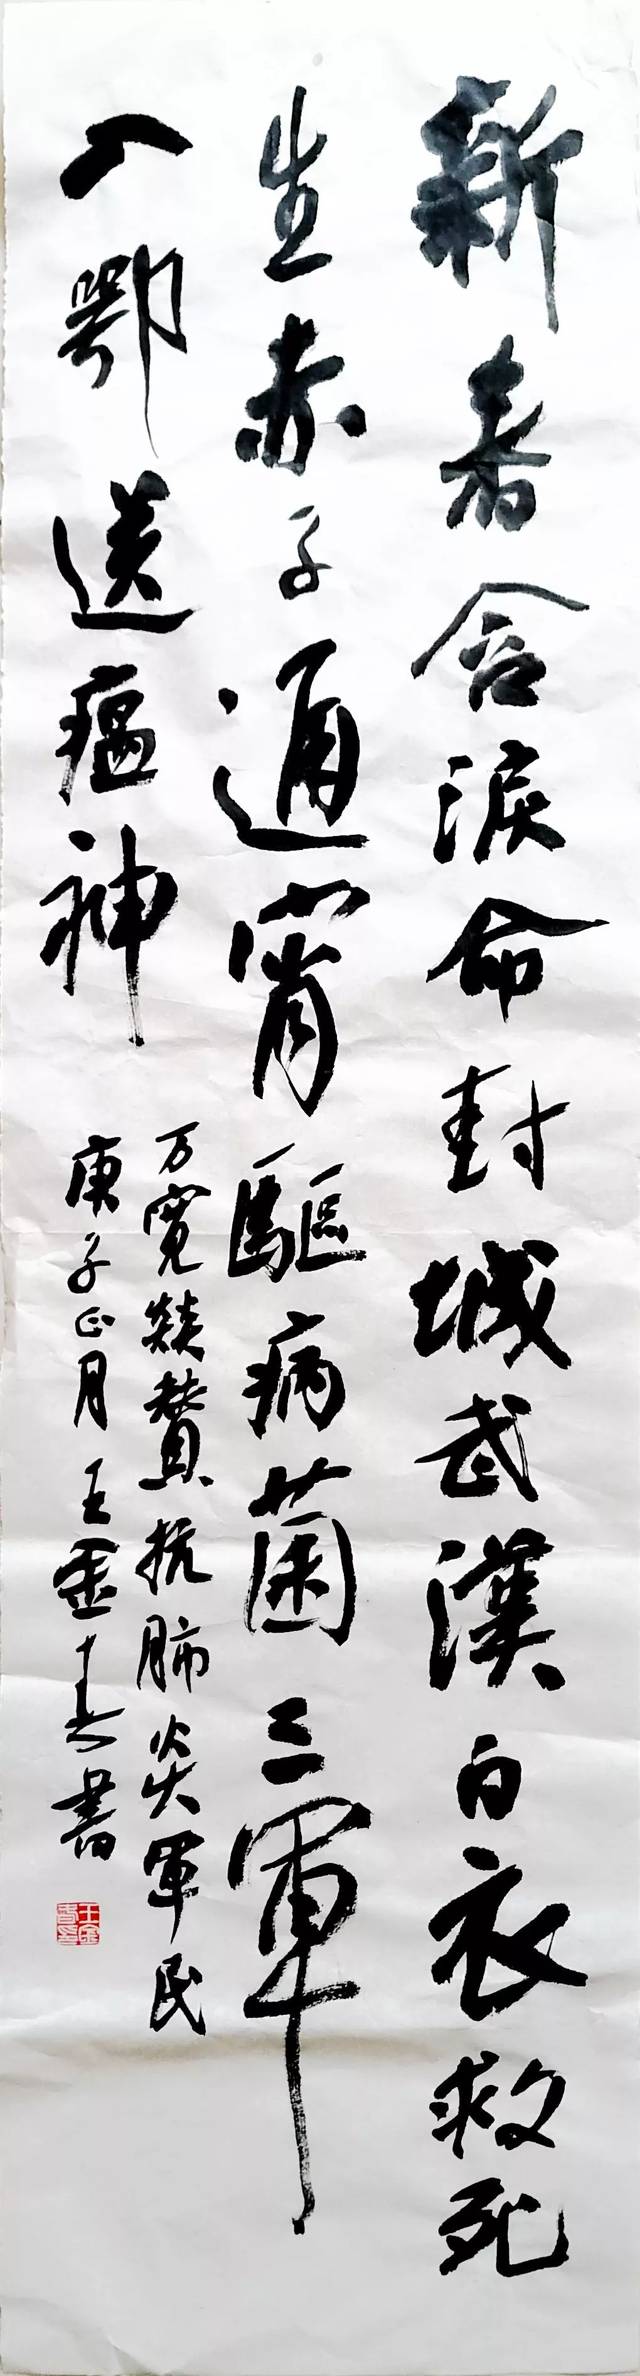 新春含淚命封城武漢白衣救死
生赤子通宵驅病菌三軍
入鄂送瘟神
万寬燚贊抗肺炎軍民
庚子正月王金春書